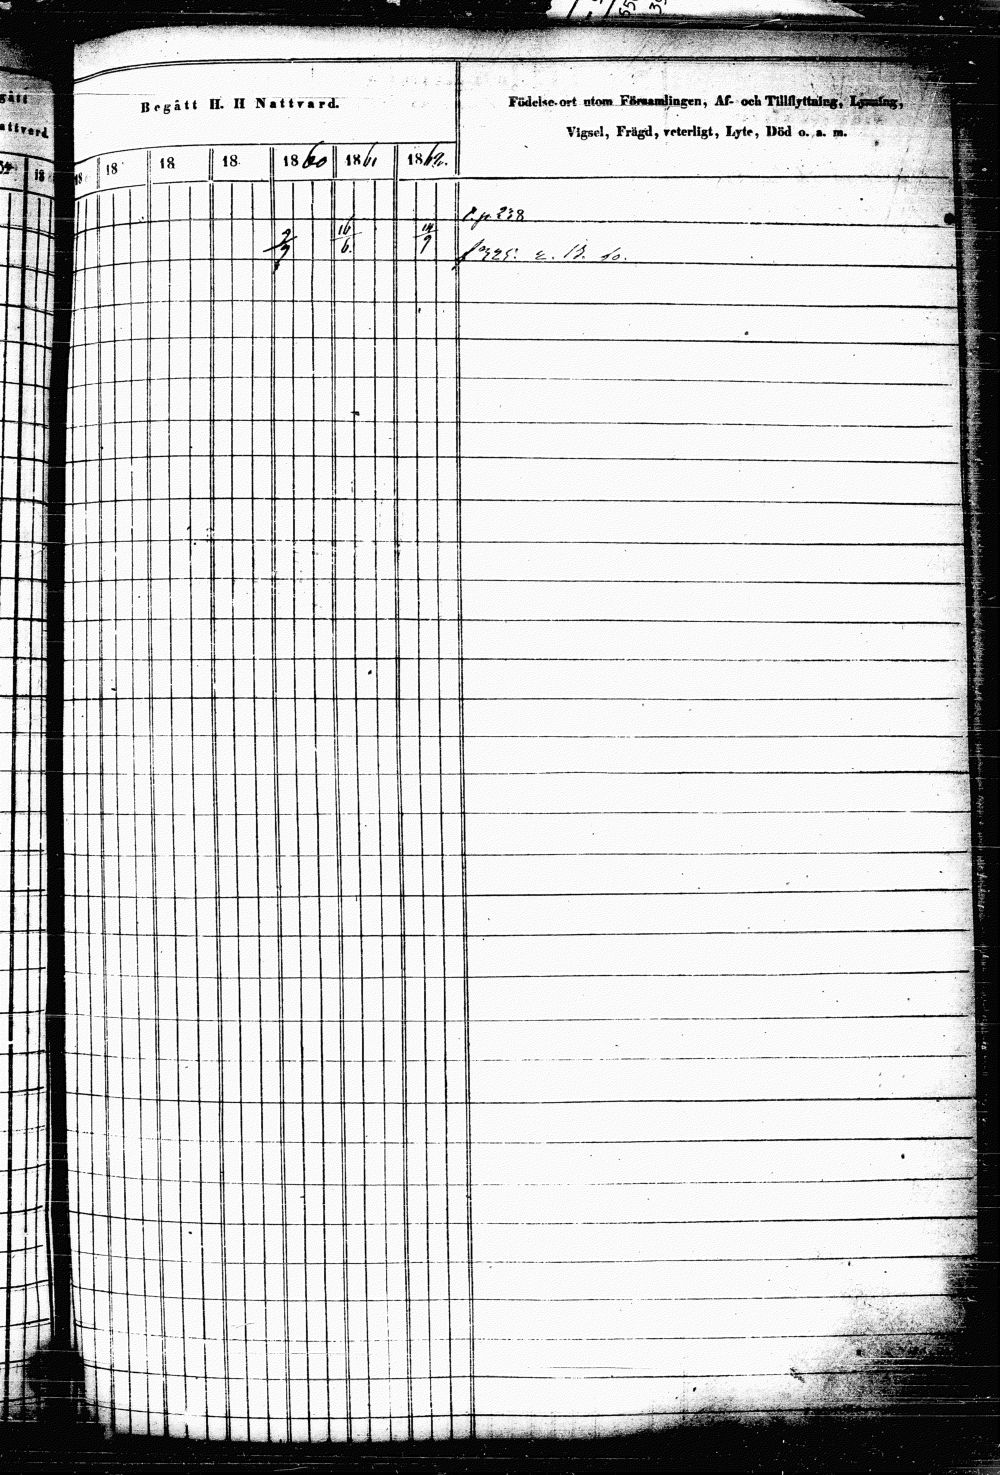 gått
attvard
18
Begått H. H Nattvard.
Födelse-ort utom Församlingen, Af- och Tillflyttning, Lysning,
Vigsel, Frägd, veterligt, Lyte, Död o. a. m.
18 18 18 18 1860 1861 1862.
p 238
2/9 16/6. 14/9
325. 13. 60.